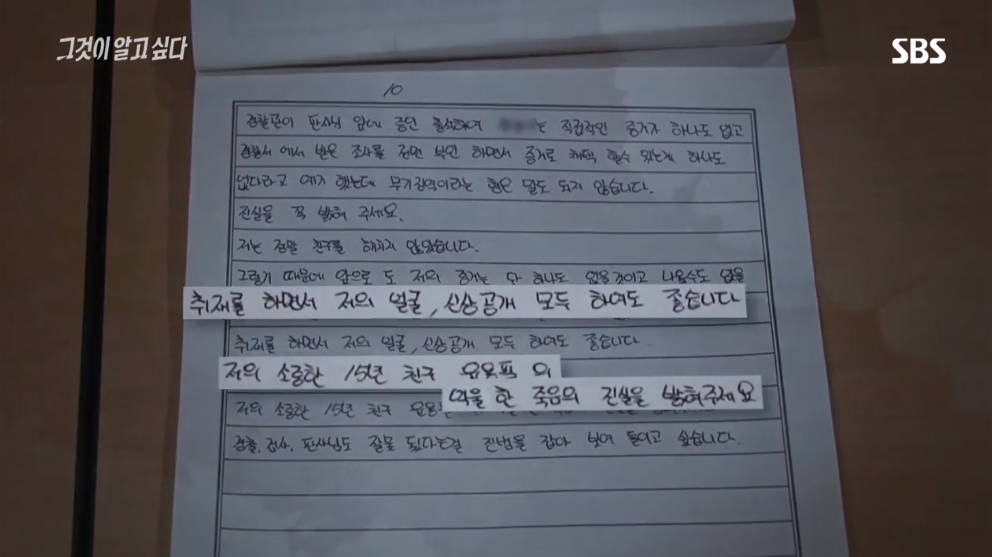 그것이 알고 싶다
SBS
10
경찰관이 판사님 앞에 증인 출석하여 는 직접적인 증거가 하나도 없고
경찰서에서 받은 조사를 전면 부인 하면서 증거로 채택 할수 있는게 하나도
없다라고 얘기 했는데 무기징역이라는 형은 말도 되지 않습니다.
진실을 꼭 밝혀 주세요.
저는 정말 친구를 해치지 않았습니다.
그렇기 때문에 앞으로 도 저의 증거는 단 하나도 없을것이고 나올수도 없을
취재를 하면서 저의 얼굴, 신상공개 모두 하여도 좋습니다
취재를 하면서 저의 얼굴, 신상공개 모두 하여도 좋습니다.
저의 소중한 15년 친구 의
억울 한 죽음의 진실을 밝혀주세요
저의 소중한 15년 친구
경찰, 검사, 판사님도 잘못 됬다는걸 진범을 잡아 넣어 들이고 싶습니다.